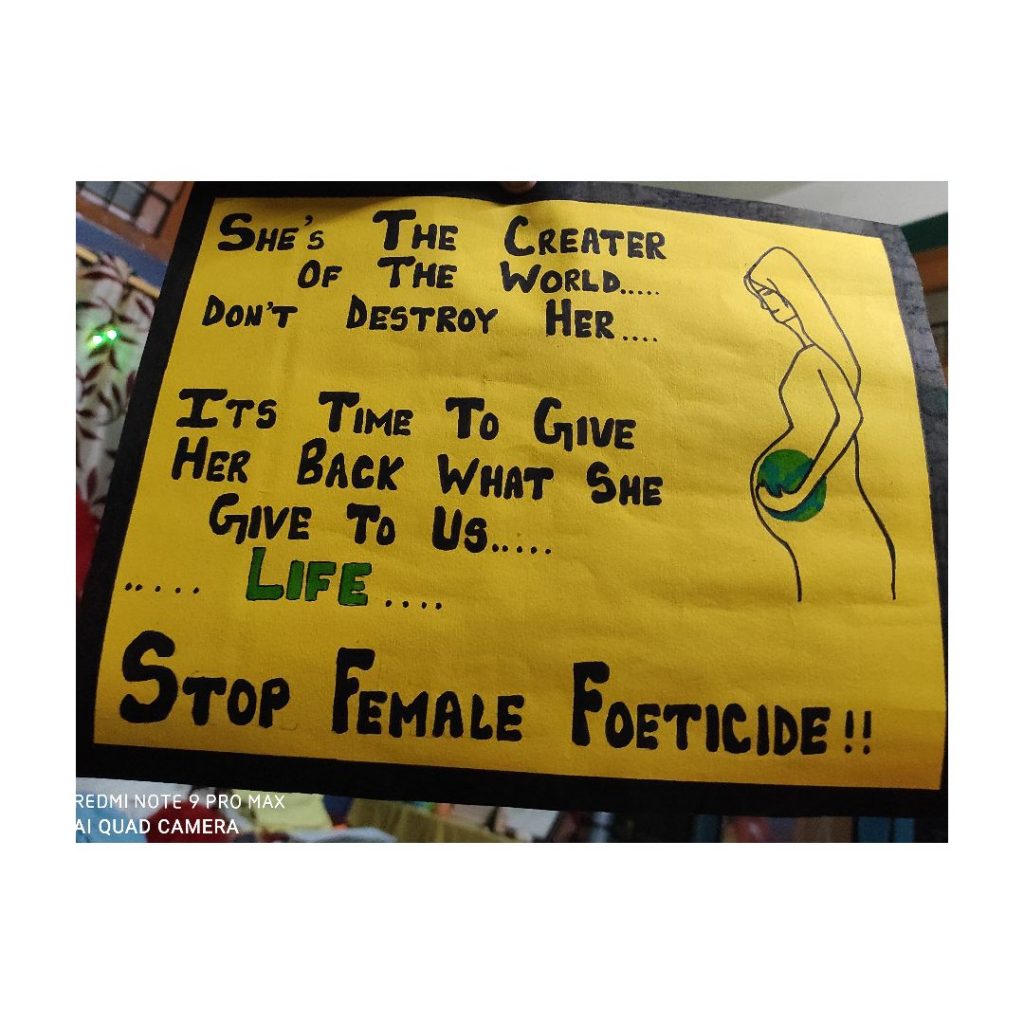 She's The Creater
Of The World.....
Don't Destroy Her....
Its Time To Give
Her Back What She
Give To Us.....
..... Life....
Stop Female Foeticide!!
REDMI NOTE 9 PRO MAX
AI QUAD CAMERA